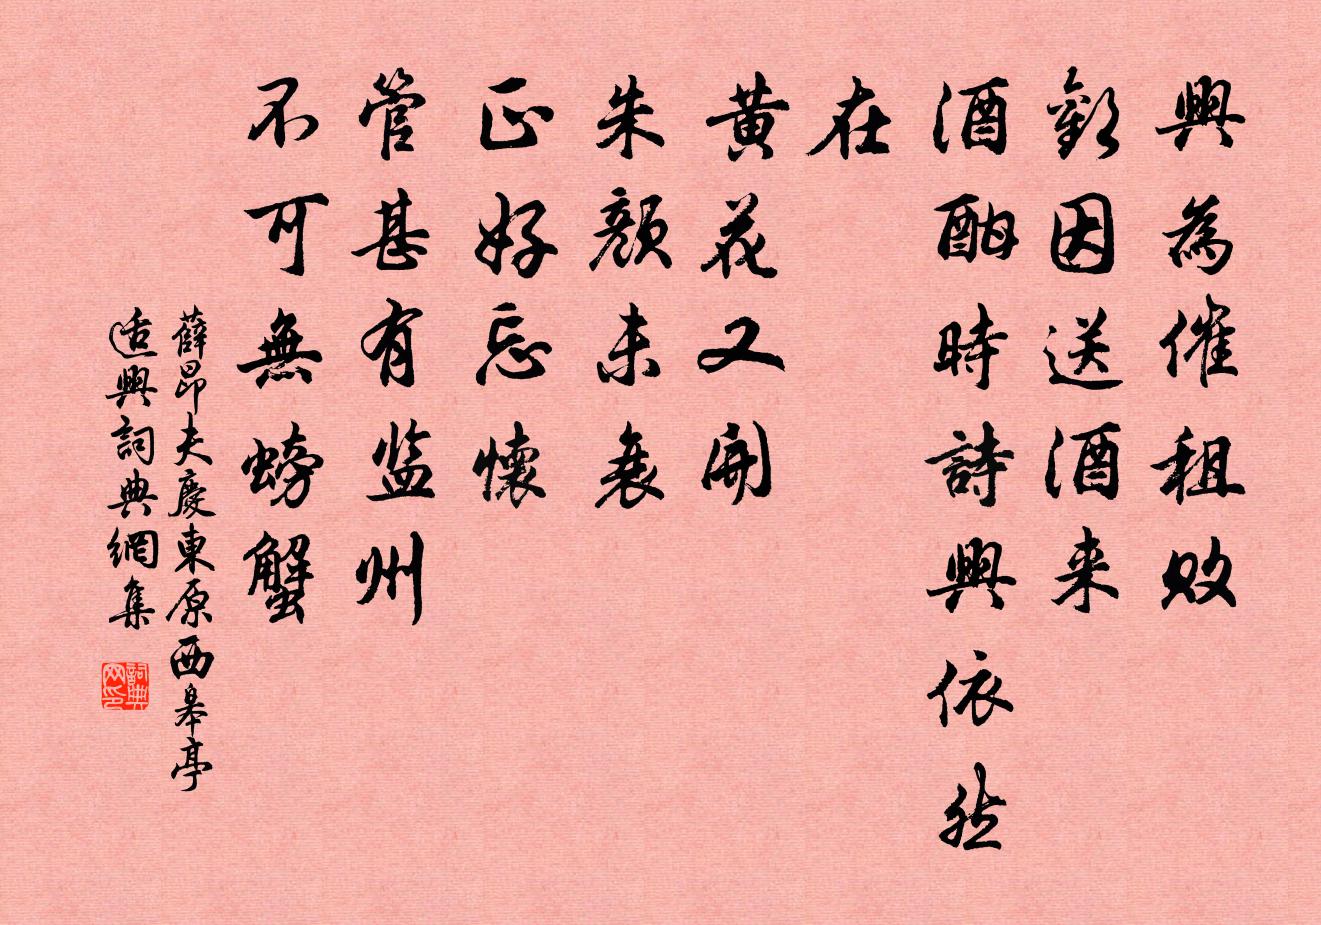 興為催租敗
歡因送酒来
酒酣時詩興依然
在
黄花又開
朱顔未衰
正好忘懷
管甚有监州
不可無螃蟹
薛昂夫慶東原西皋亭
适興詞典網集
詞典网印